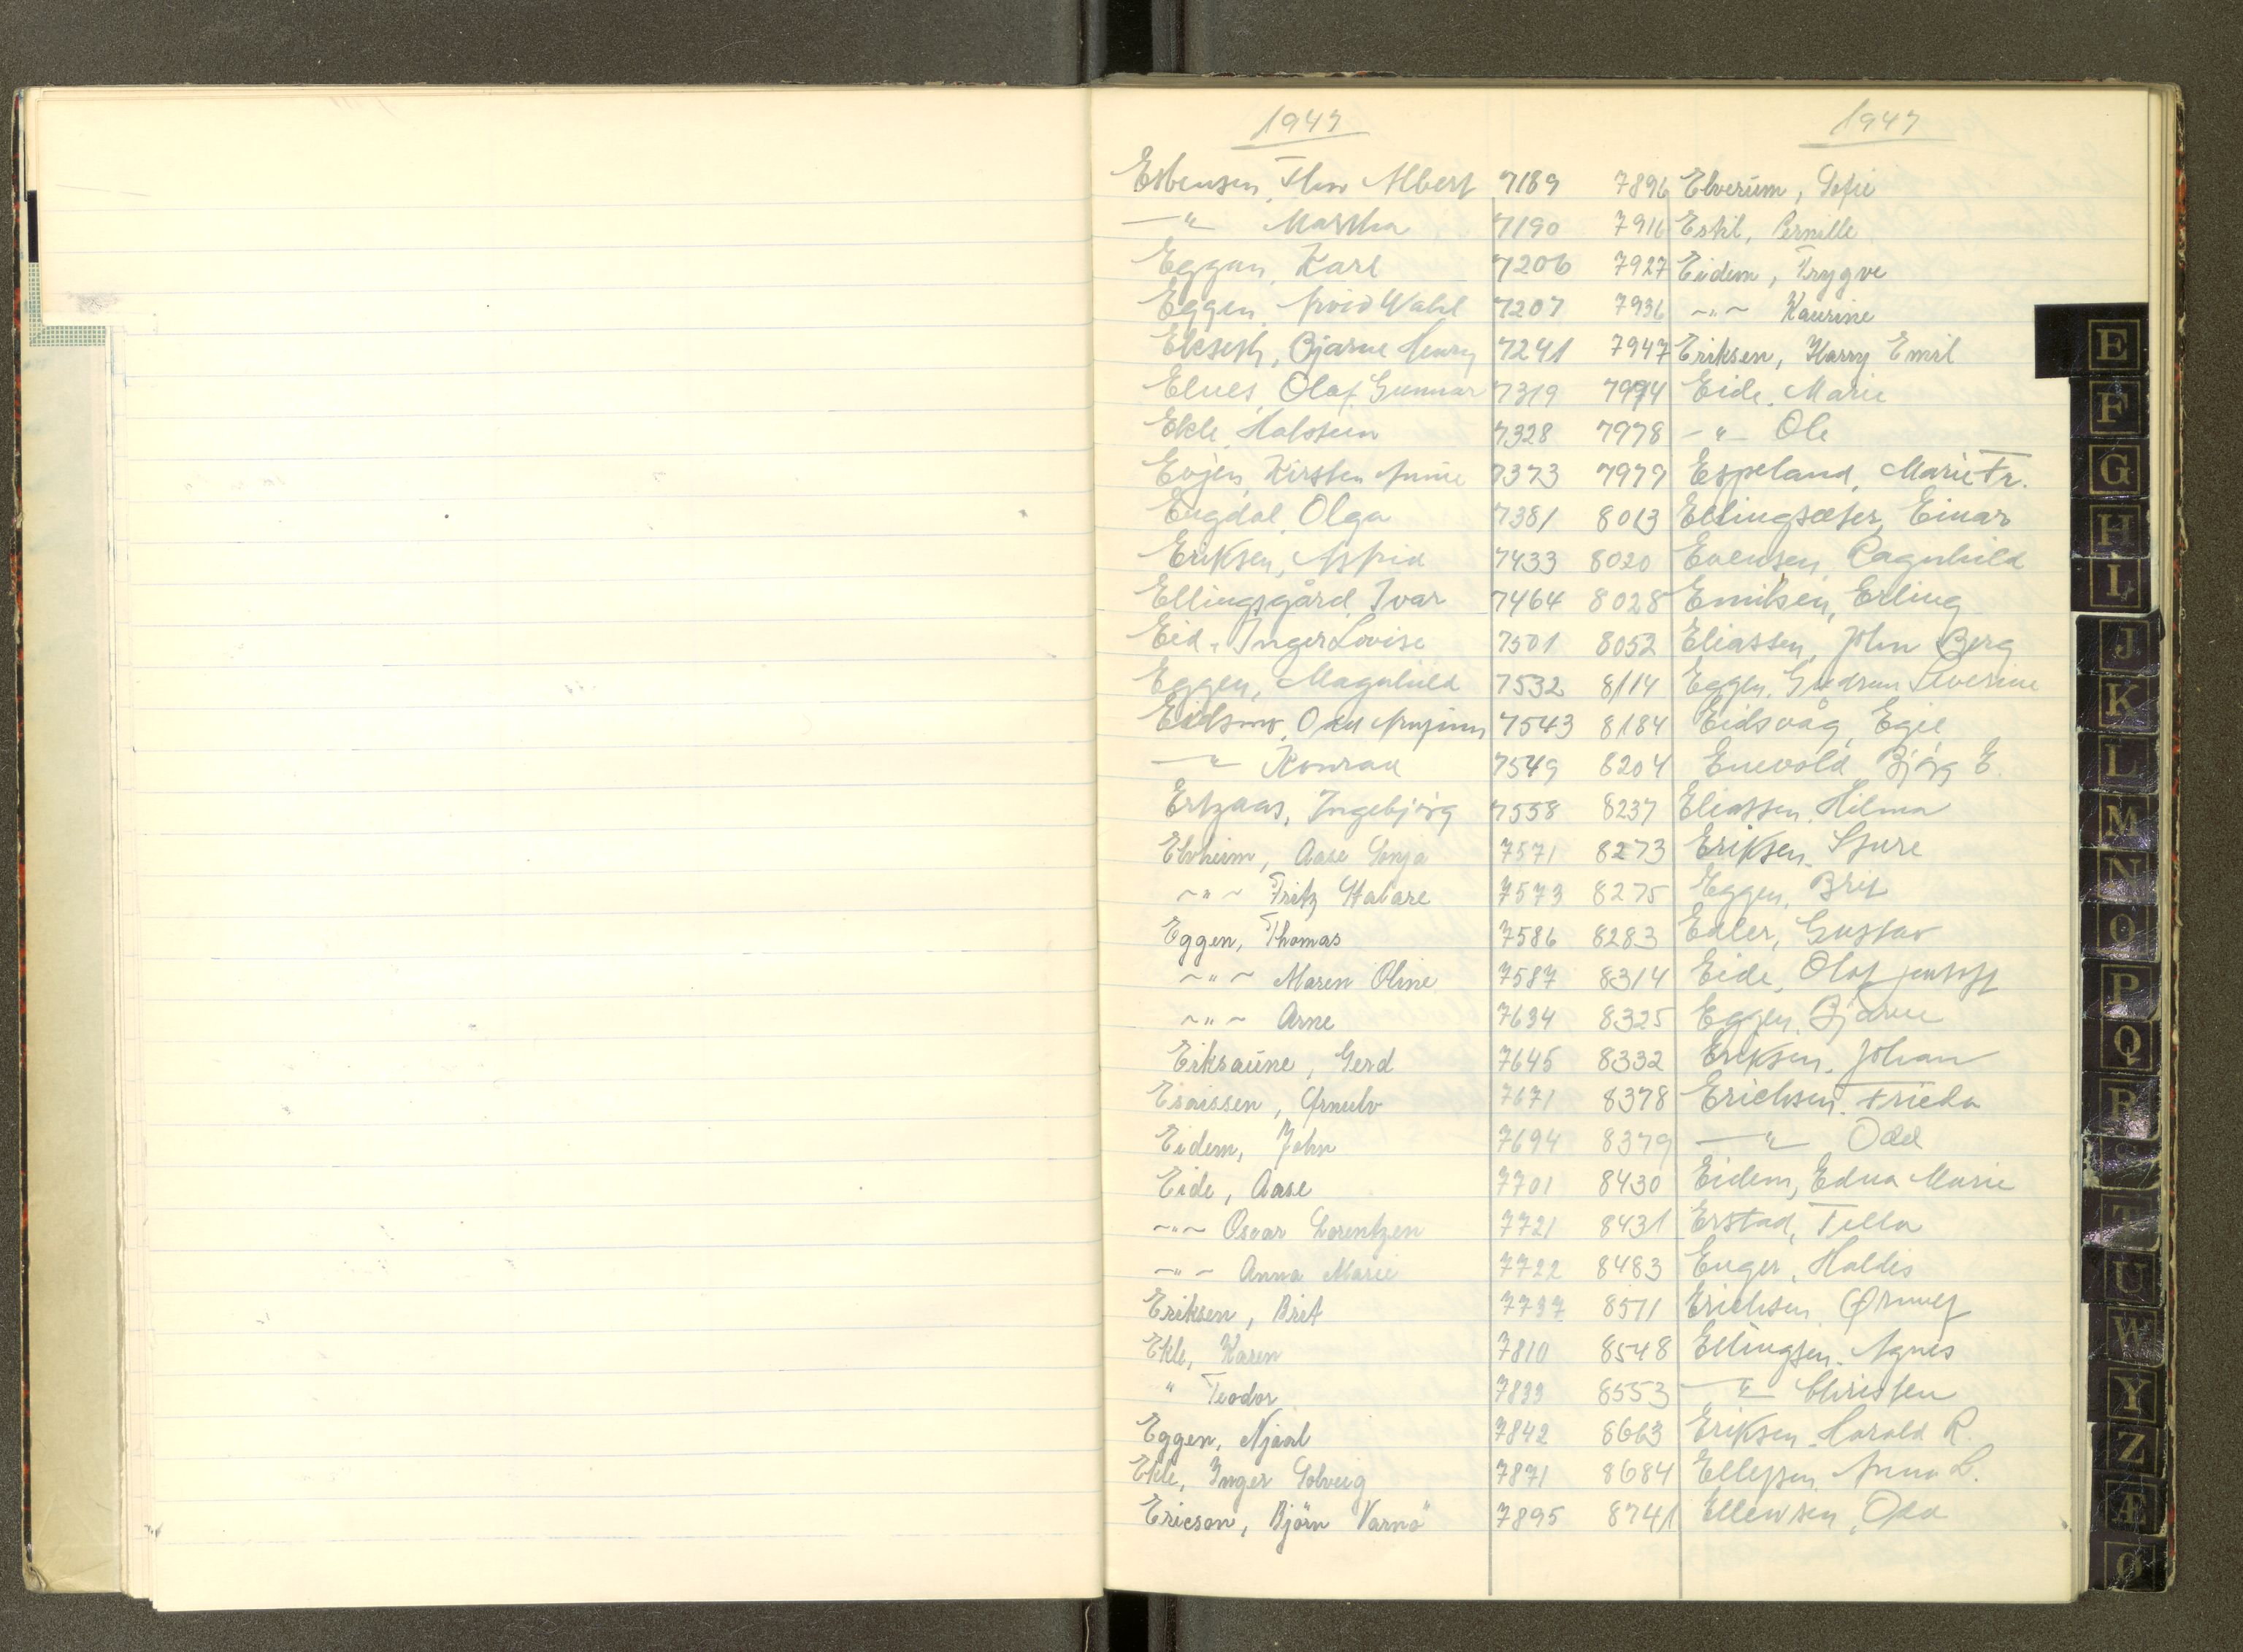 1947 1947
Esbensen, Thor Albert 7189 7896 Elverum, Sofie
—"— Martha 7190 7916 Eskil, Pernille
Eggan, Karl 7206 7927 Eidem, Trygve
Eggen, Arvid Wahl 7207 7936 ~"~ Kaurine
Bjarne Henry 7241 7947 Eriksen, Harry Emil
Elnes, Olaf Gunnar 7319 7974 Eide, Marie
Ekle, Halstein 7328 7978 —"— Ole
Evjen, Kirsten Annie 7373 7979 Espeland, Marie Fr.
Engdal, Olga 7381 8013 Ellingsæter, Einar
Eriksen, Astrid 7433 8020 Evensen, Ragnhild
Ellingsgård, Ivar 7464 8028 Emilsen, Erling
Eid, Inger Lovise 7501 8052 Eliassen, John Berg
Eggen, Magnhild 7532 8114 Eggen, Gudrun Severine
Eidsmo, Odd Arnfinn 7543 8184 Eidsvåg, Egil
—"— Konrad 7549 8204 Enevold, Bjørg E.
Ertzaas, Ingebjørg 7558 8237 Eliassen, Hilma
Elvheim, Aase Sonja 7571 8273 Eriksen, Sture
~"~ Fritz Habare 7573 8275 Eggen, Brit
Eggen, Thomas 7586 8283 Edler, Gustav
~"~ Maren Oline 7587 8314 Eide, Olaf Jentoft
~"~ Arne 7634 8325 Eggen, Bjarne
Eiksaune, Gerd 7645 8332 Eriksen, Johan
Esaissen, Ørnulv 7671 8378 Erichsen, Frieda
Eidem, John 7694 8379 —"— Odd
Eide, Aase 7701 8430 Eidem, Edna Marie
~"~ Osvar Lorentzen 7721 8431 Erstad, Tella
~"~ Anna Marie 7722 8483 Enger, Haldis
Eriksen, Brit 7737 8511 Erichsen, Ørnulf
Ekle, Karen 7810 8548 Ellingsen, Agnes
" Teodor 7833 8553 —"— Christen
Eggen, Njaal 7842 8663 Eriksen, Harald R.
Ekle, Inger Solveig 7871 8684 Ellefsen, Anna L.
Ericson, Björn Varnö 7895 8741 Ellewsen, Odd
E
F
G
H
I
J
K
L
M
N
O
P
Q
R
S
T
U
W
Y
Z
Æ
Ø